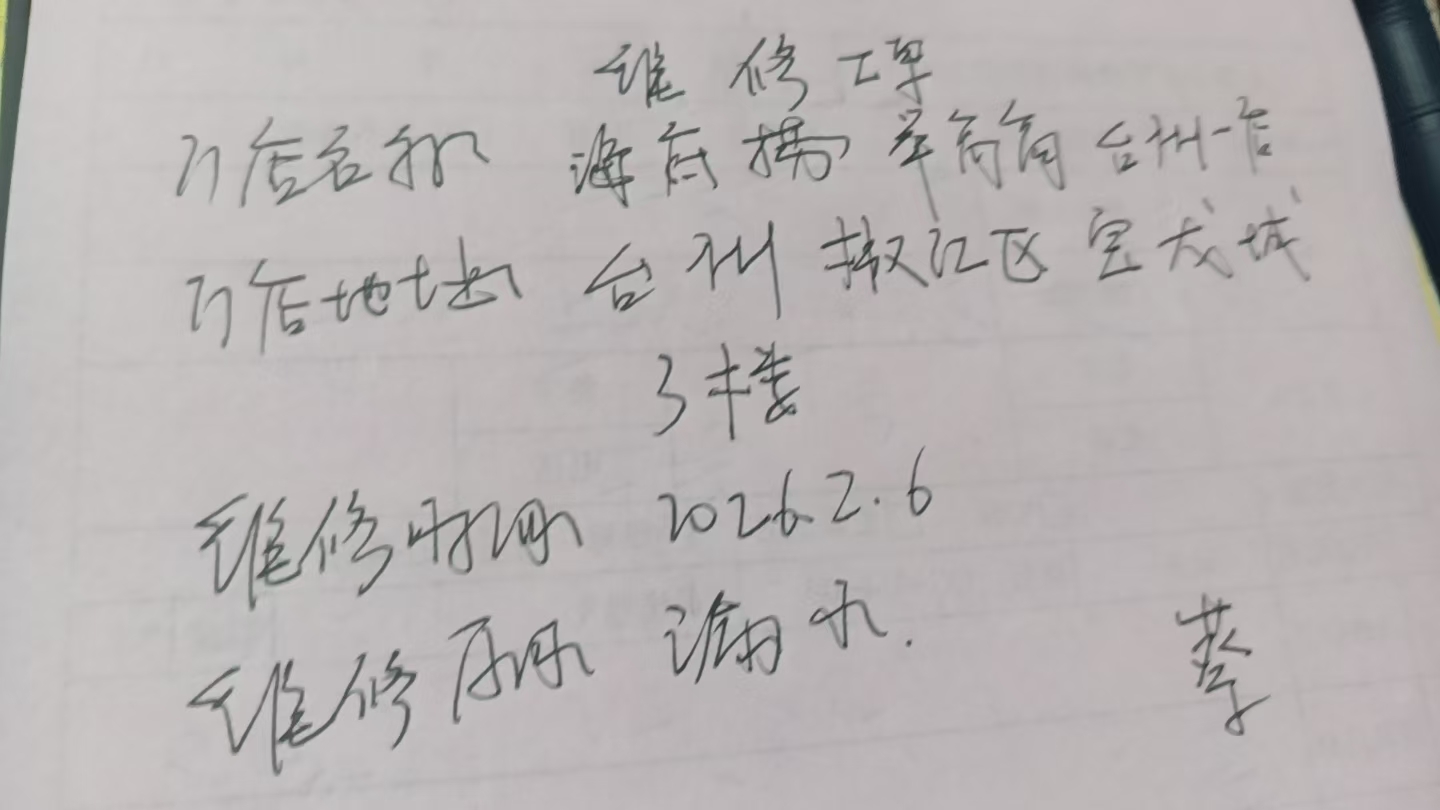 维修工单
门店名称 海底捞 台州一店
门店地址 台州椒江区宝龙城
3楼
维修时间 2026.2.6
维修原因 漏水.
蔡